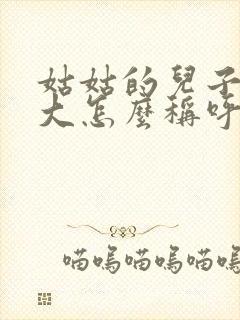 姑姑的兒子
大怎麼稱呼
喵嗚喵嗚喵嗚